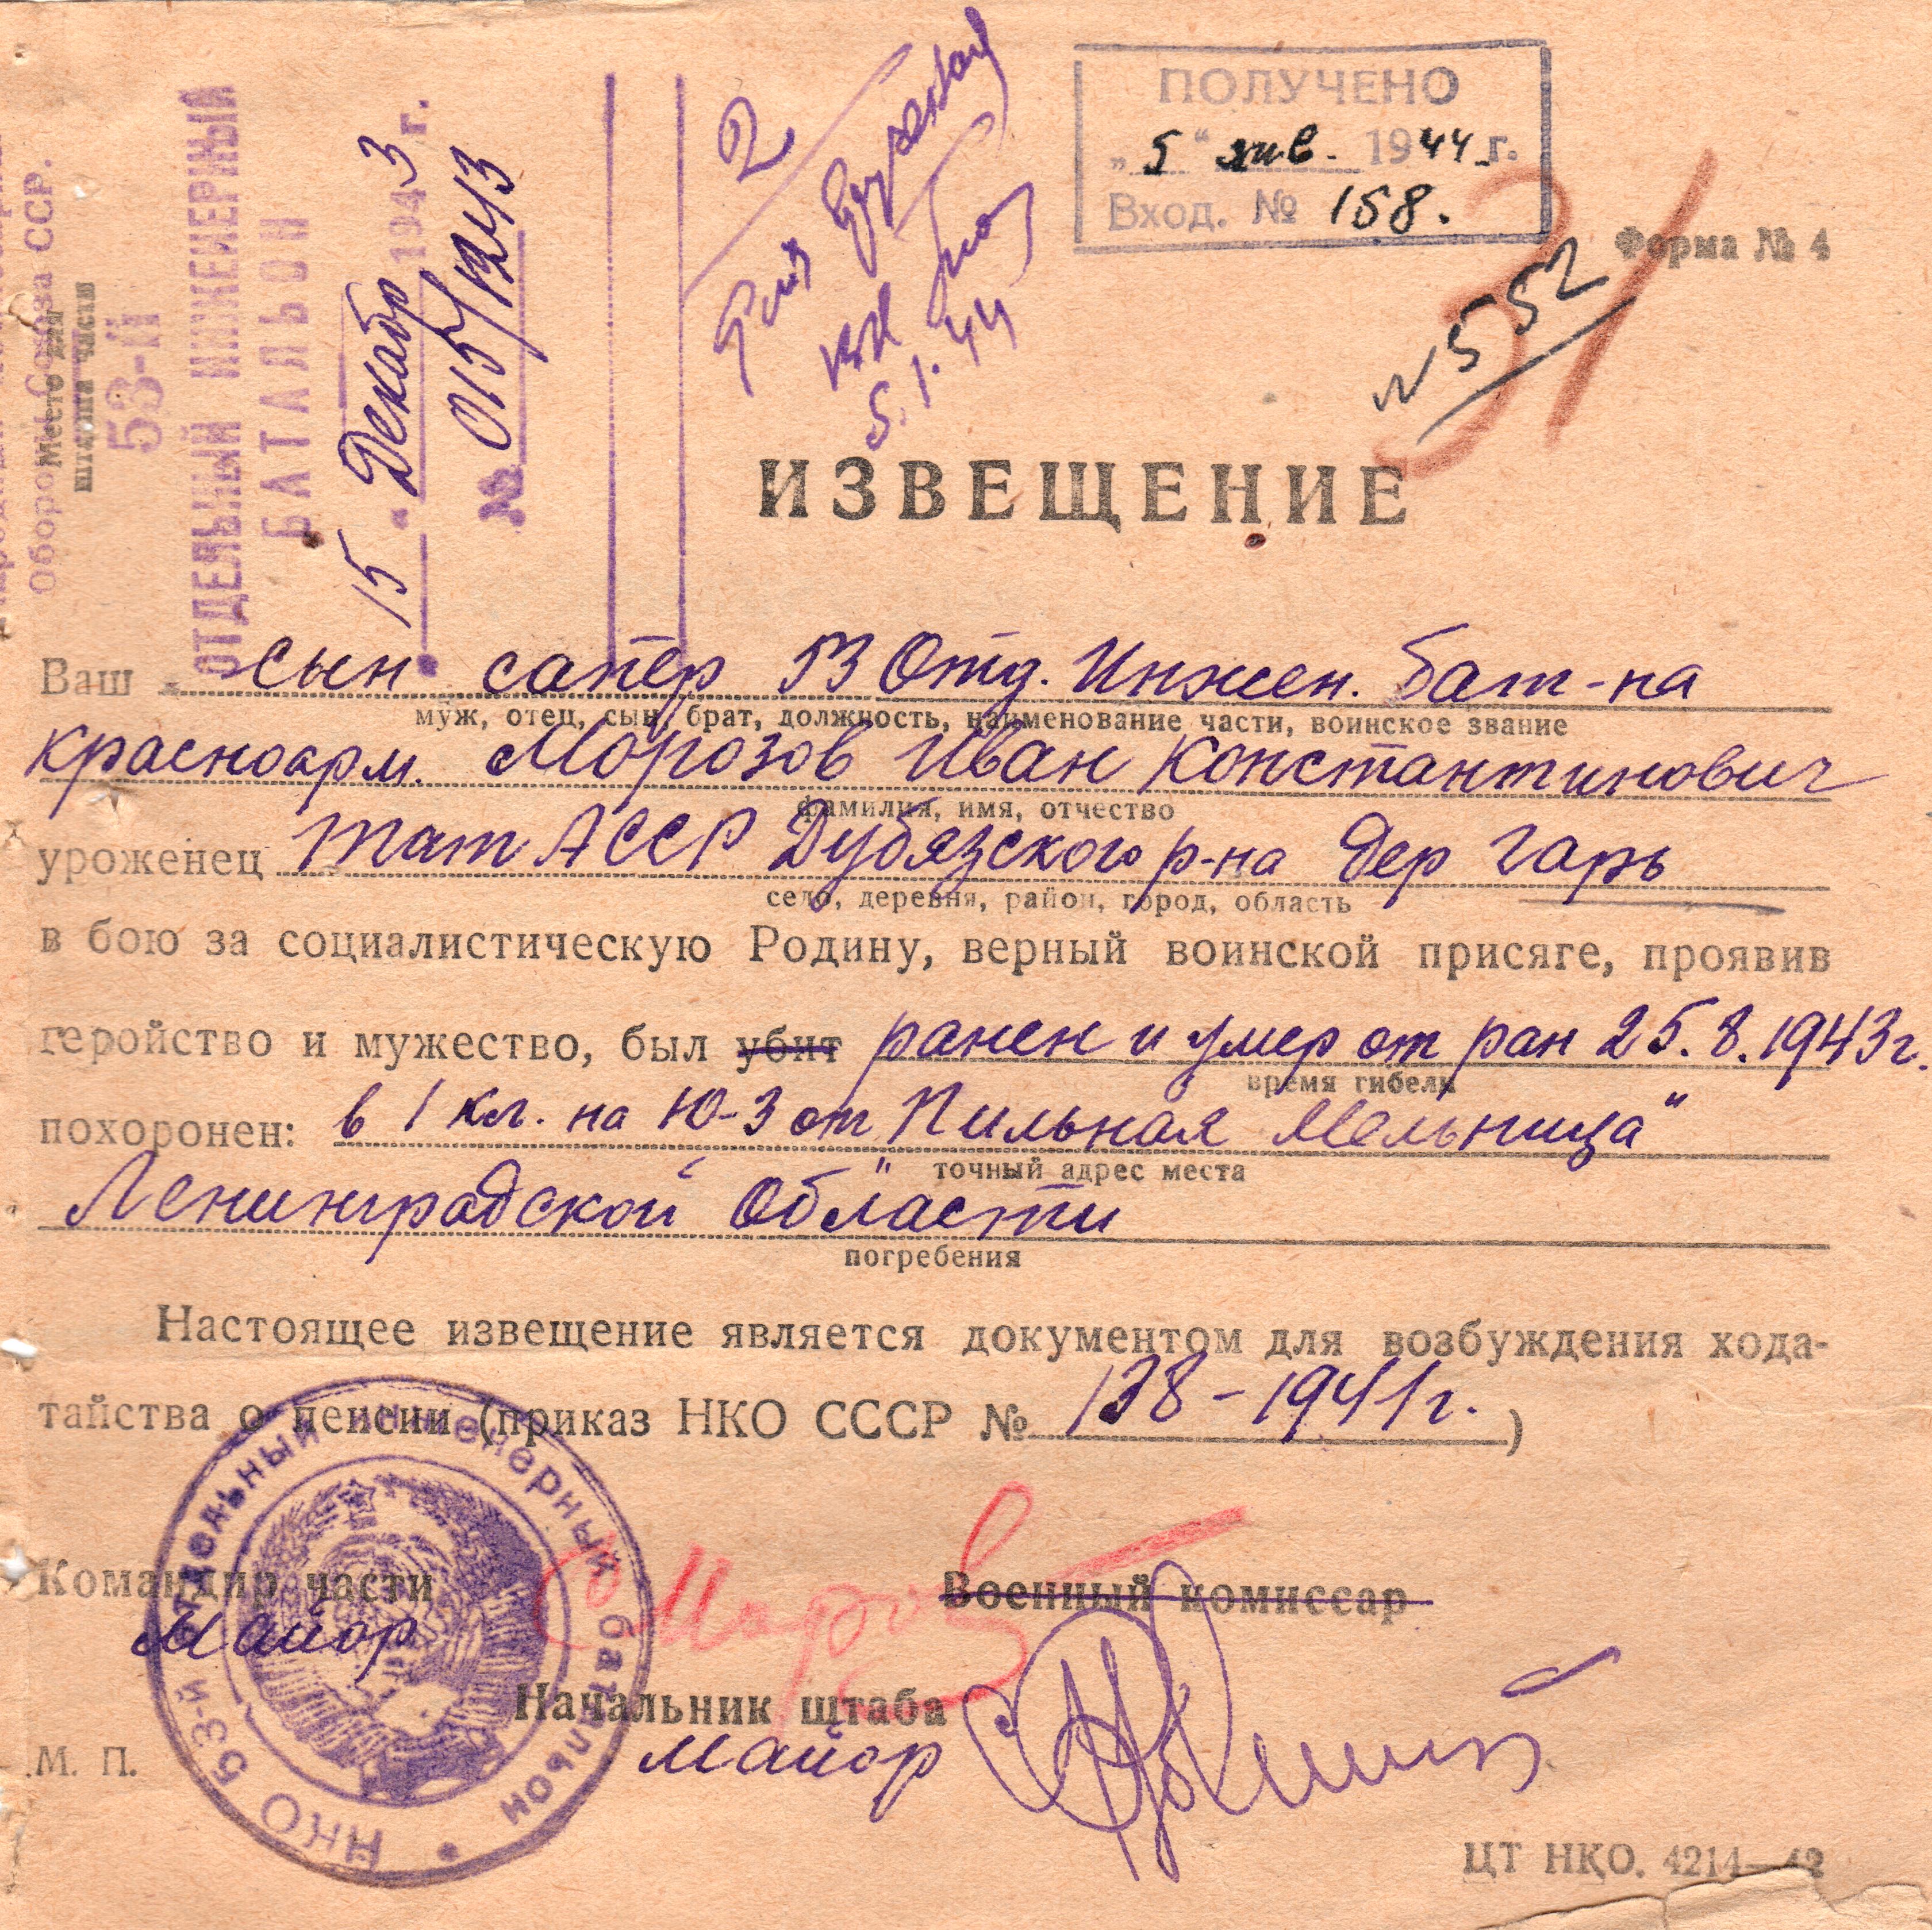 Обороны Союза ССР.
Место для
штампа части
53-й
ОТДЕЛЬНЫЙ ИНЖЕНЕРНЫЙ
БАТАЛЬОН
15 " Декабр 1943 г.
№ 015/1243
2
5.1.44
ПОЛУЧЕНО
„5" янв. 1944 г.
Вход. № 158.
Форма № 4
31
N 552
ИЗВЕЩЕНИЕ
Ваш сын сапер 53 Отд. Инжен. бат-на
муж, отец, сын, брат, должность, наименование части, воинское звание
красноарм. Морозов Иван Константинович
фамилия, имя, отчество
уроженец Тат АССР Дубязского р-на дер Гарь
село, деревня, район, город, область
в бою за социалистическую Родину, верный воинской присяге, проявив
геройство и мужество, был убит ранен и умер от ран 25.8.1943г.
время гибели
похоронен: в 1 кл. на Ю-З от „Пильная Мельница"
точный адрес места
Ленинградской Области
погребения
Настоящее извещение является документом для возбуждения хода-
тайства о пенсии (приказ НКО СССР № 138-1941г.)
Командир части
Майор
Военный комиссар
Начальник штаба
Майор
М. П.
НКО 53-й отдельный инженерный батальон
ЦТ НКО. 4214—42